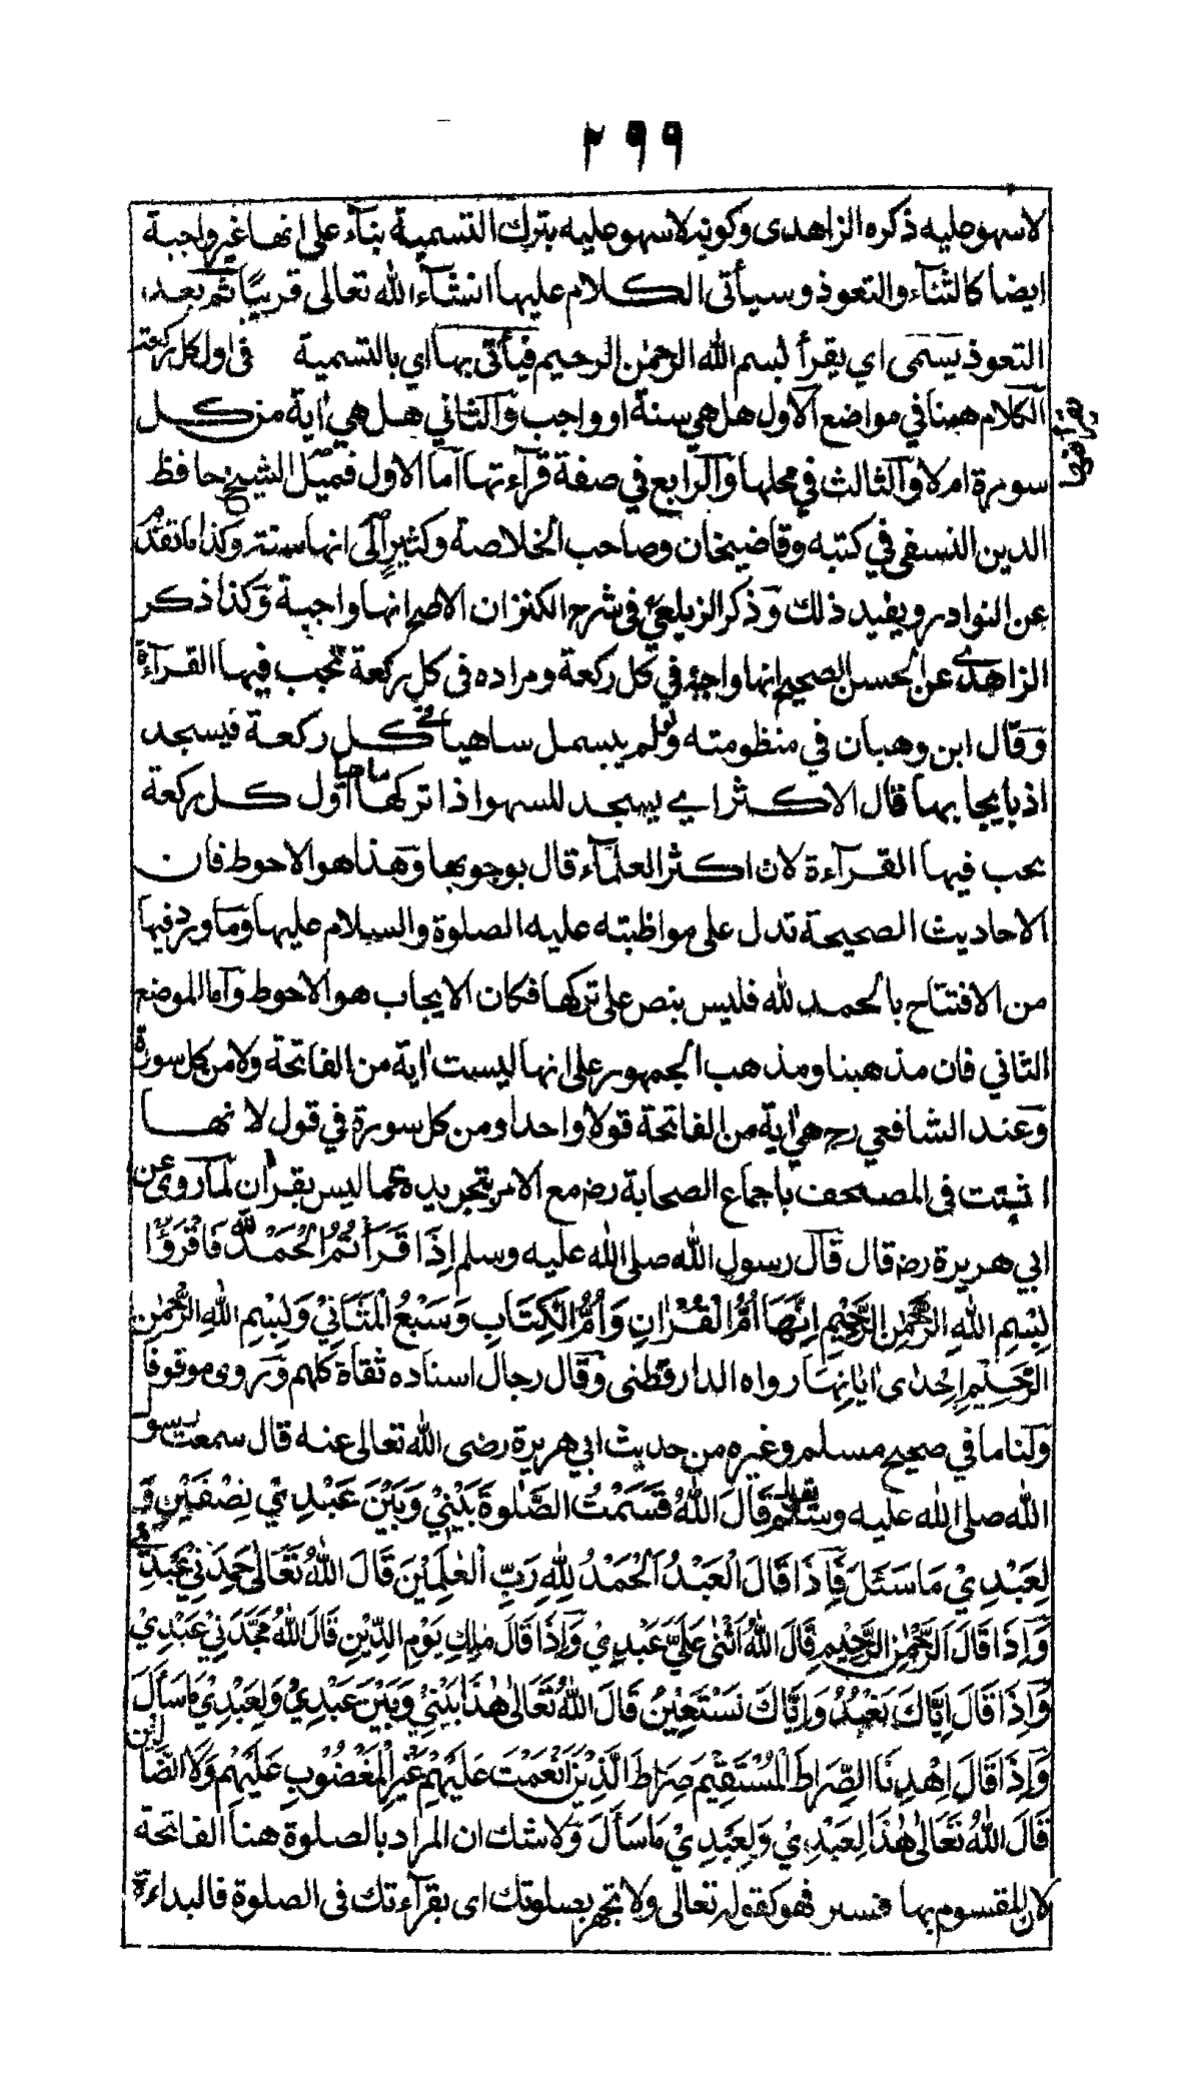 ٢٩٩
لاسهو عليه ذكره الزاهدى وكونه لاسهو عليه بترك التسمية بناء على انها غير واجبة
ايضا كالثنآء والتعوذ وسيأتى الكلام عليها انشآء الله تعالى قريبًا ثم بعد
التعوذ يسمى اي يقرأ بسم الله الرحمٰن الرحيم فيأتى بها اي بالتسمية فى اول كل ركعة
الكلام ههنا في مواضع الاول هل هي سنة او واجب والثاني هل هي اٰية من كل
سورة ام لا والثالث في محلها والرابع في صفة قرآءتها اما الاول فميل الشيخ حافظ
الدين النسفى في كتبه وقاضيخان وصاحب الخلاصة وكثير الى انها سنة وكذا ما تقدم
عن النوادر ويفيد ذلك وذكر الزيلعي فى شرح الكنز ان الاصح انها واجبة وكذا ذكر
الزاهدى عن الحسن الصحيح انها واجبة في كل ركعة ومراده فى كل ركعة تجب فيها القرآءة
وقال ابن وهبان في منظومته ولو لم يبسمل ساهيا كل ركعة فيسجد
اذ بايجابها قال الاكثر اي يسجد للسهو اذا تركها ساهيا اول كل ركعة
يجب فيها القرآءة لان اكثر العلمآء قال بوجوبها وهذا هو الاحوط فان
الاحاديث الصحيحة تدل على مواظبته عليه الصلوة والسلام عليها وما ورد فيها
من الافتتاح بالحمد لله فليس بنص على تركها فكان الايجاب هو الاحوط واما الموضع
الثاني فان مذهبنا ومذهب الجمهور على انها ليست اٰية من الفاتحة ولا من كل سورة
وعند الشافعي رح هي اٰية من الفاتحة قولا واحدا ومن كل سورة في قول لانها
اثبتت فى المصحف باجماع الصحابة رضم مع الامر بتجريده عما ليس بقراٰن لما روى عن
ابي هريرة رضم قال قال رسول الله صلى الله عليه وسلم اِذَا قَرَأْتُمُ الْحَمْدُ لِلّٰهِ فَاقْرَؤُا
بِسْمِ اللهِ الرَّحْمٰنِ الرَّحِيْمِ اِنَّهَا اُمُّ الْقُرْاٰنِ وَاُمُّ الْكِتَابِ وَسَبْعُ الْمَثَانِيْ وَبِسْمِ اللهِ الرَّحْمٰنِ
الرَّحِيْمِ اِحْدٰى اٰيَاتِهَا رواه الدارقطنى وقال رجال اسناده ثقاة كلهم وروى موقوفا
ولنا ما في صحيح مسلم وغيره من حديث ابي هريرة رضى الله تعالى عنه قال سمعت رسول
الله صلى الله عليه وسلم قَالَ اللهُ تعالى قَسَمْتُ الصَّلٰوةَ بَيْنِيْ وَبَيْنَ عَبْدِيْ نِصْفَيْنِ وَ
لِعَبْدِيْ مَا سَئَلَ فَاِذَا قَالَ الْعَبْدُ اَلْحَمْدُ لِلّٰهِ رَبِّ الْعٰلَمِيْنَ قَالَ اللهُ تَعَالٰى حَمِدَنِيْ عَبْدِيْ
وَاِذَا قَالَ اَلرَّحْمٰنِ الرَّحِيْمِ قَالَ اللهُ اَثْنٰى عَلَيَّ عَبْدِيْ وَاِذَا قَالَ مٰلِكِ يَوْمِ الدِّيْنِ قَالَ اللهُ مَجَّدَنِيْ عَبْدِيْ
وَاِذَا قَالَ اِيَّاكَ نَعْبُدُ وَاِيَّاكَ نَسْتَعِيْنُ قَالَ اللهُ تَعَالٰى هٰذَا بَيْنِيْ وَبَيْنَ عَبْدِيْ وَلِعَبْدِيْ مَا سَأَلَ
وَاِذَا قَالَ اِهْدِنَا الصِّرَاطَ الْمُسْتَقِيْمَ صِرَاطَ الَّذِيْنَ اَنْعَمْتَ عَلَيْهِمْ غَيْرِ الْمَغْضُوْبِ عَلَيْهِمْ وَلَا الضَّالِّيْنَ
قَالَ اللهُ تَعَالٰى هٰذَا لِعَبْدِيْ وَلِعَبْدِيْ مَا سَأَلَ ولا شك ان المراد بالصلوة هنا الفاتحة
لان المقسوم بها فسر فهو كقوله تعالى ولا تجهر بصلوتك اى بقرآءتك فى الصلوة فالبداءة